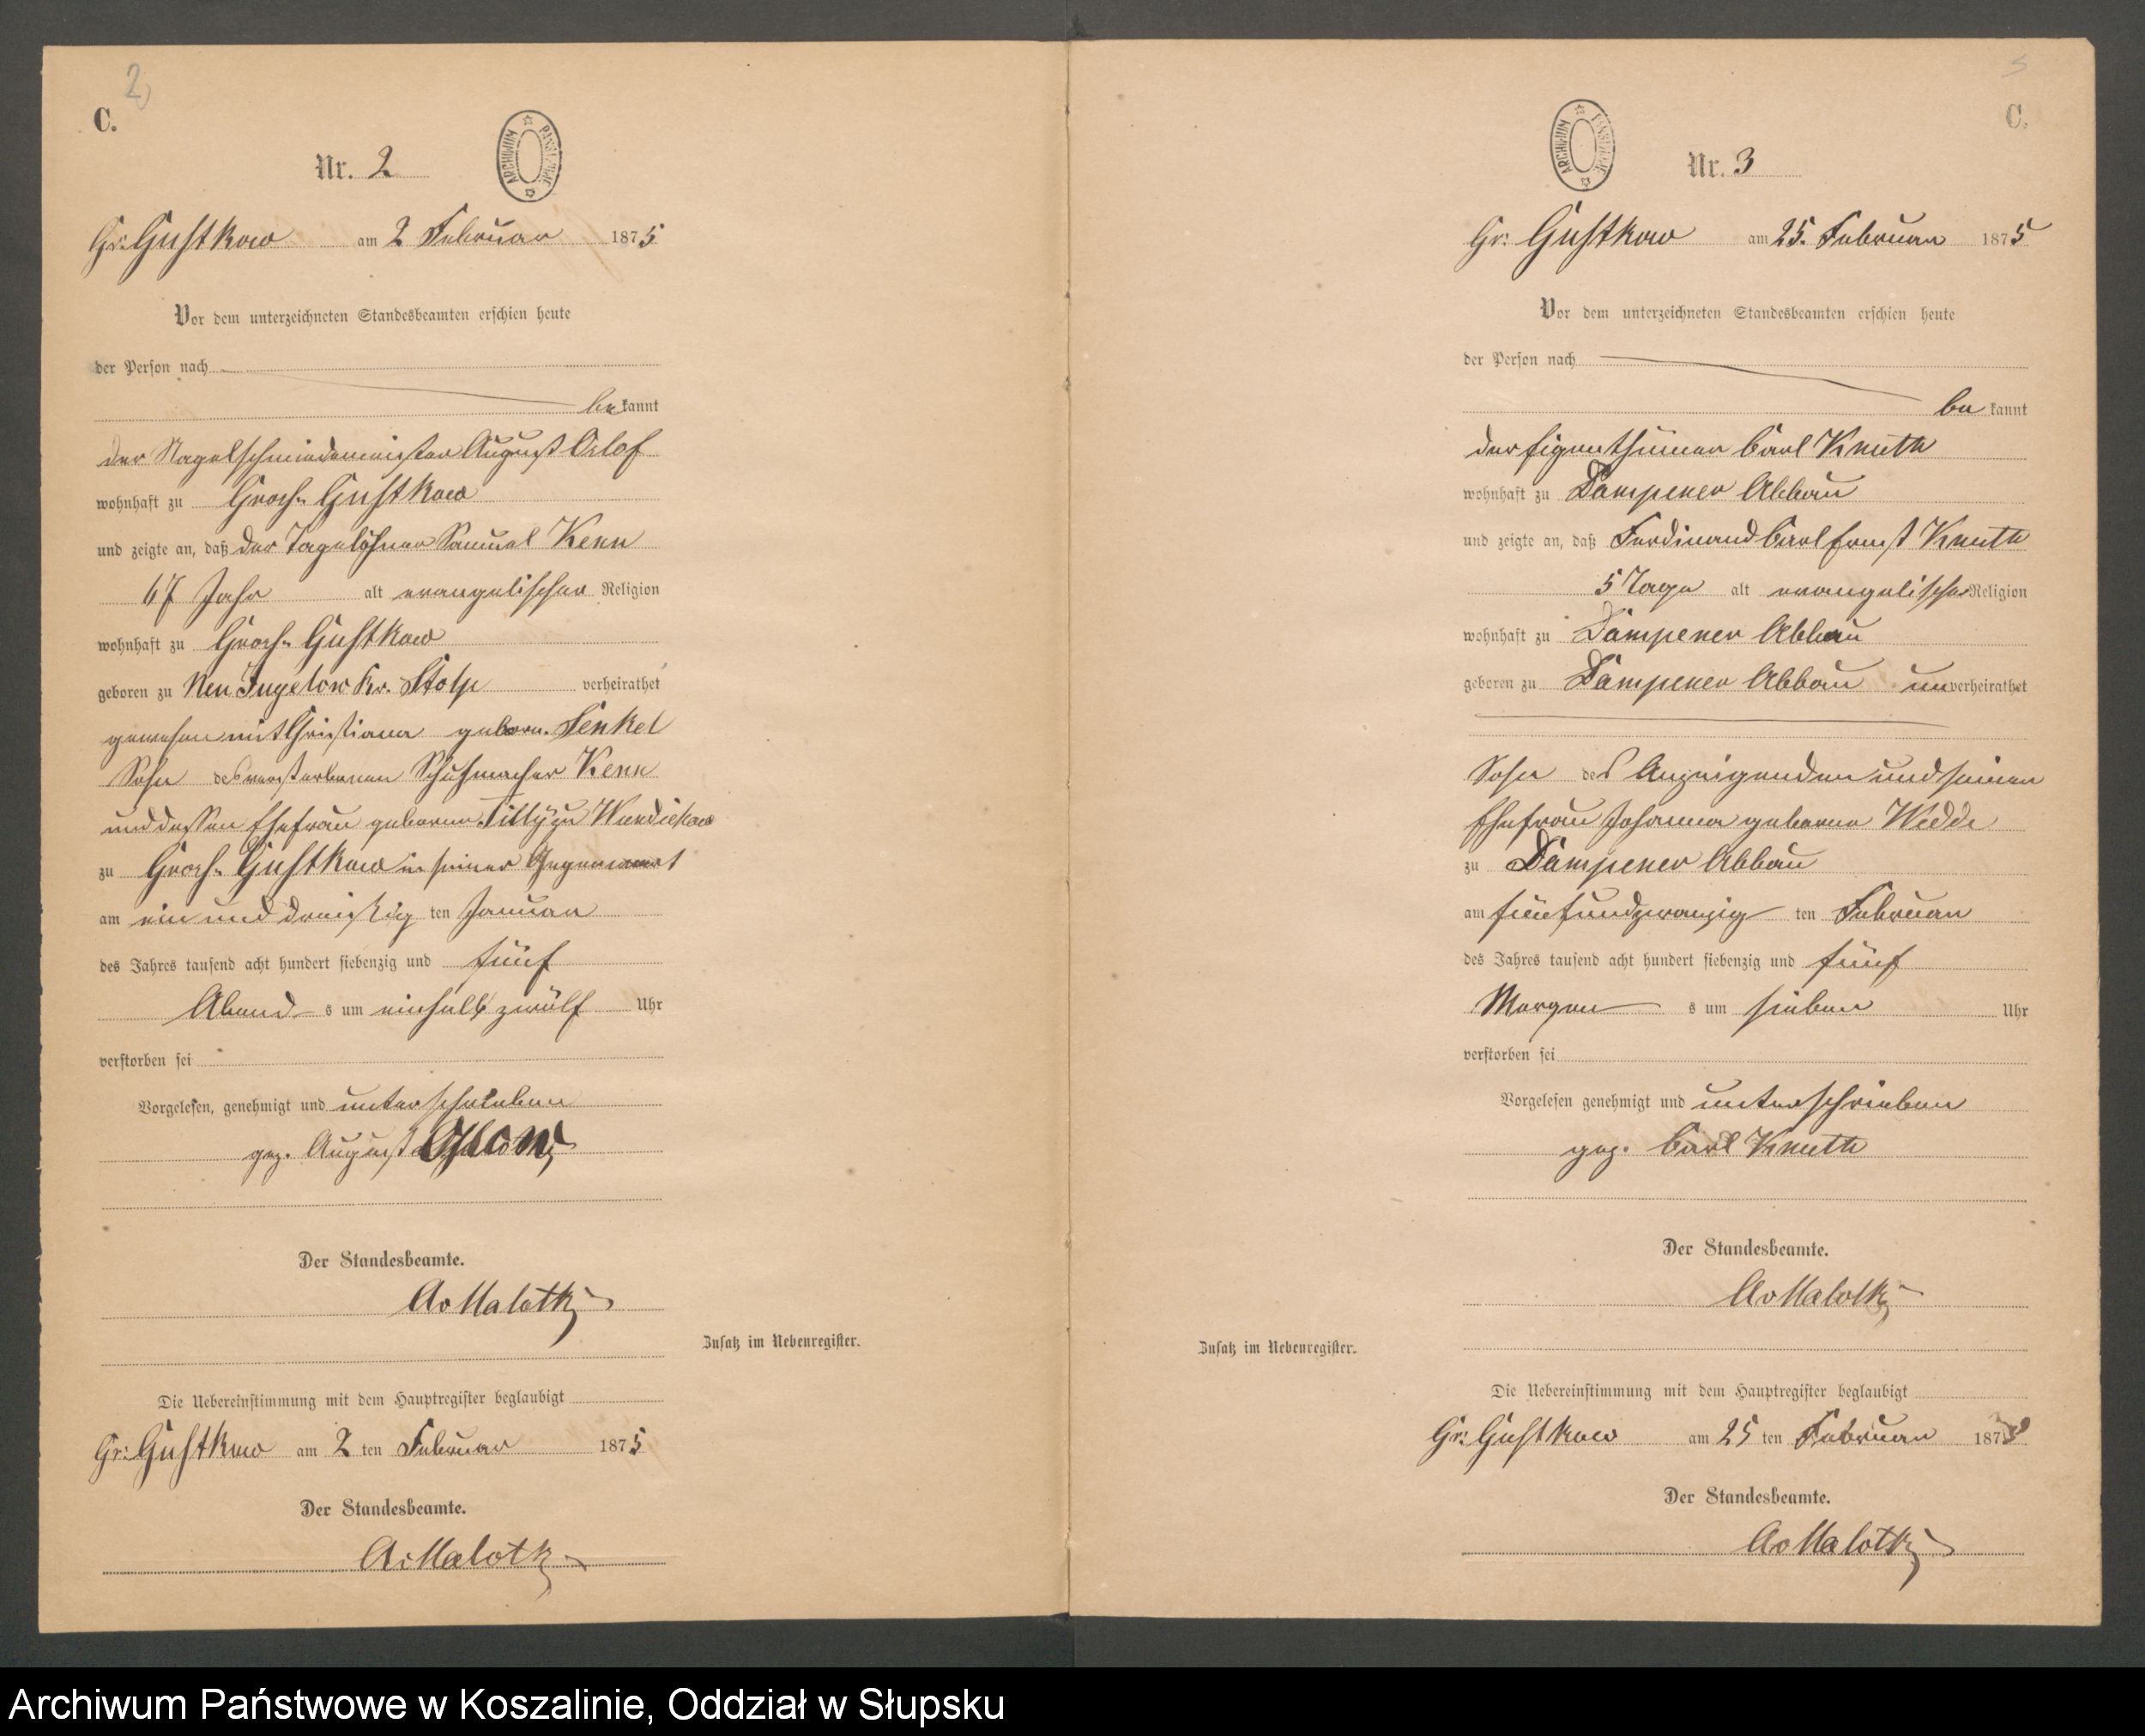 2
C.
Nr. 2
ARCHIWUM PAŃSTWOWE
Gr: Gustkow am 2 Februar 1875
Vor dem unterzeichneten Standesbeamten erschien heute
der Person nach
bekannt
der Nagelschmiedemeister August
wohnhaft zu Groß Gustkow
und zeigte an, daß der Tagelöhner Samuel Kenn
67 Jahr alt evangelischer Religion
wohnhaft zu Groß Gustkow
geboren zu Neu Jugelow Kr. Stolp verheirathet
gewesen mit Christiane geborn. Henkel
Sohn des verstorbenen Schuhmacher Kenn
und dessen Ehefrau geborene zu
zu Groß Gustkow in seiner Gegenwart
am ein und dreißig ten Januar
des Jahres tausend acht hundert siebenzig und fünf
Abend s um einhalb zwölf Uhr
verstorben sei
Vorgelesen, genehmigt und unterschrieben
gez. August
Der Standesbeamte.
AvMalotky
Zusatz im Nebenregister.
Die Uebereinstimmung mit dem Hauptregister beglaubigt
Gr: Gustkow am 2 ten Februar 1875
Der Standesbeamte.
AvMalotky
C.
Nr. 3
ARCHIWUM PAŃSTWOWE
Gr: Gustkow am 25. Februar 1875
Vor dem unterzeichneten Standesbeamten erschien heute
der Person nach
be kannt
der Eigenthümer Carl Knuth
wohnhaft zu Dampener Abbau
und zeigte an, daß Ferdinand Carl Ernst Knuth
5 Tage alt evangelischer Religion
wohnhaft zu Dampener Abbau
geboren zu Dampener Abbau unverheirathet
Sohn des Anzeigenden und seiner
Ehefrau Johanna geborene Wedde
zu Dampener Abbau
am fünfundzwanzig ten Februar
des Jahres tausend acht hundert siebenzig und fünf
Morgen s um sieben Uhr
verstorben sei
Vorgelesen genehmigt und unterschrieben
gez. Carl Knuth
Der Standesbeamte.
AvMalotky
Zusatz im Nebenregister.
Die Uebereinstimmung mit dem Hauptregister beglaubigt
Gr: Gustkow am 25 ten Februar 1875
Der Standesbeamte.
AvMalotky
Archiwum Państwowe w Koszalinie, Oddział w Słupsku